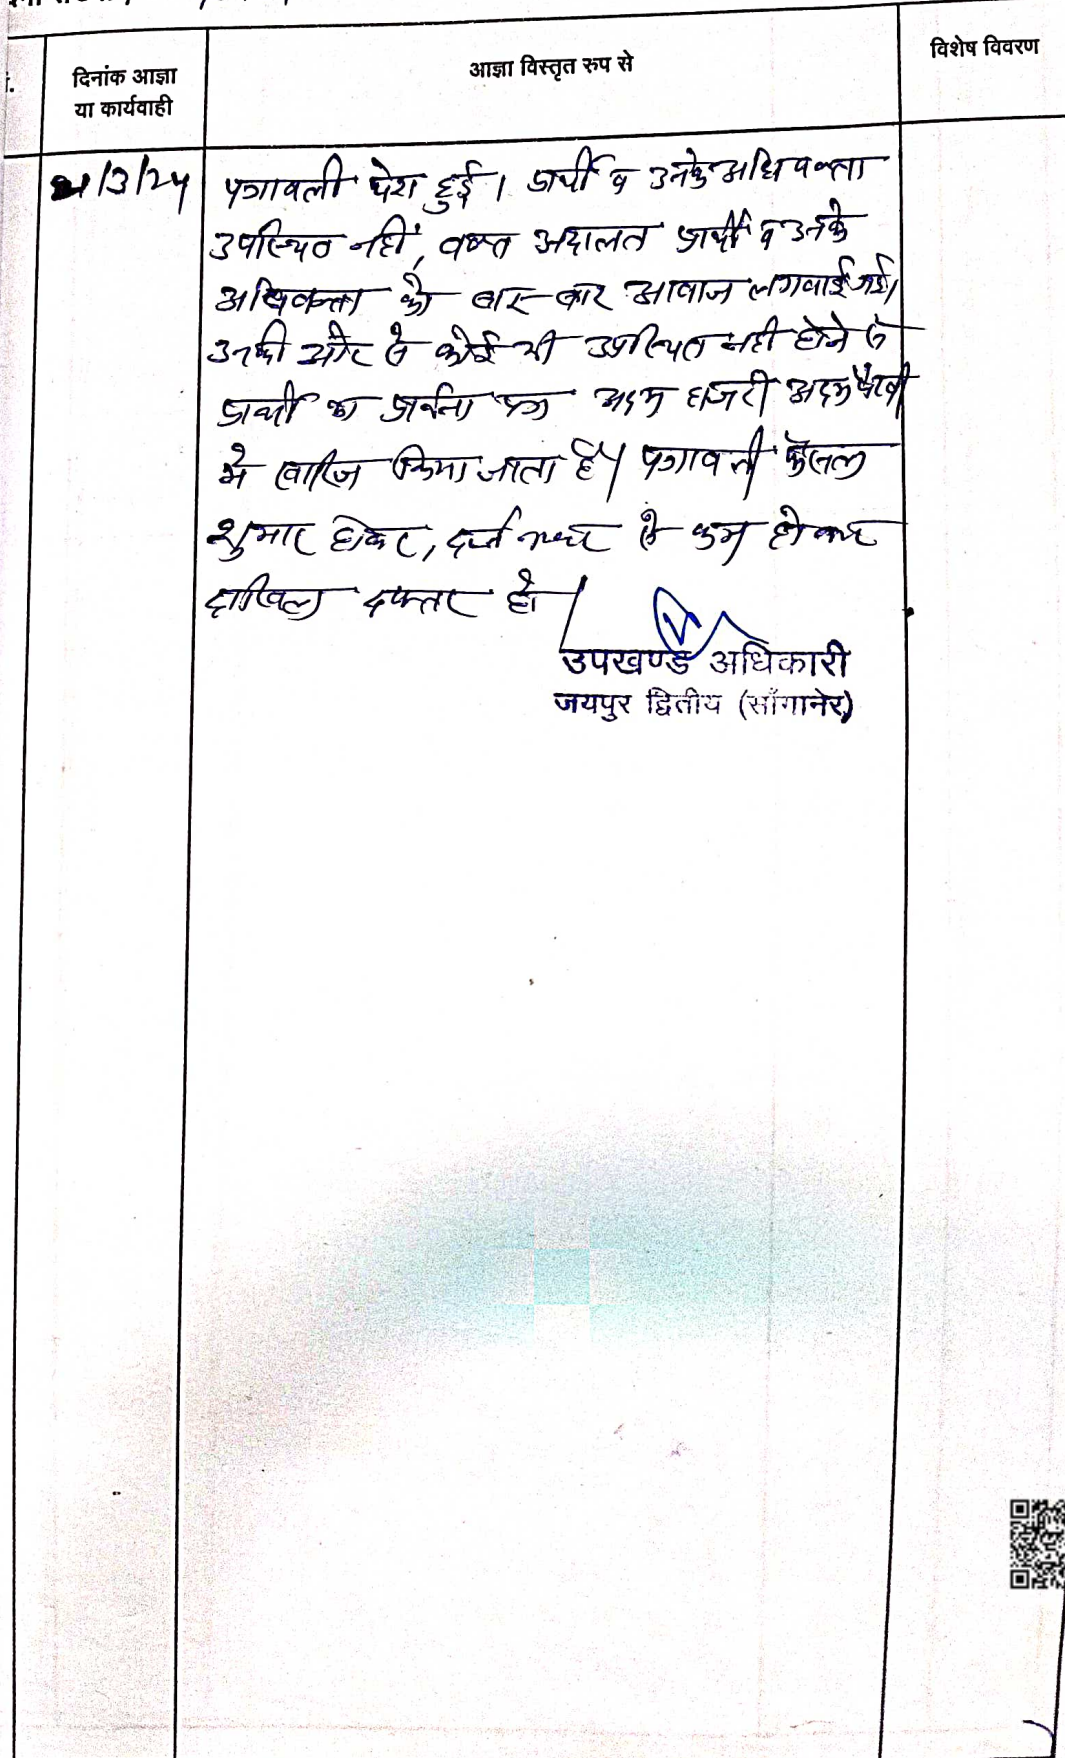 दिनांक आज्ञा
या कार्यवाही
आज्ञा विस्तृत रुप से
विशेष विवरण
/3/24
पत्रावली पेश हुई। प्रार्थी व उनके अधिवक्ता
उपस्थित नहीं, वक्त अदालत प्रार्थी व उनके
अधिवक्ता को बार-बार आवाज लगवाई गई।
उनकी ओर से कोई भी उपस्थित नही होने से
प्रार्थी का प्रार्थना पत्र अदम हाजरी अदम पैरवी
मे खारिज किया जाता है। पत्रावली फैसल
शुमार होकर, दर्ज नम्बर से कम होकर
दाखिल दफ्तर हो।
उपखण्ड अधिकारी
जयपुर द्वितीय (साँगानेर)